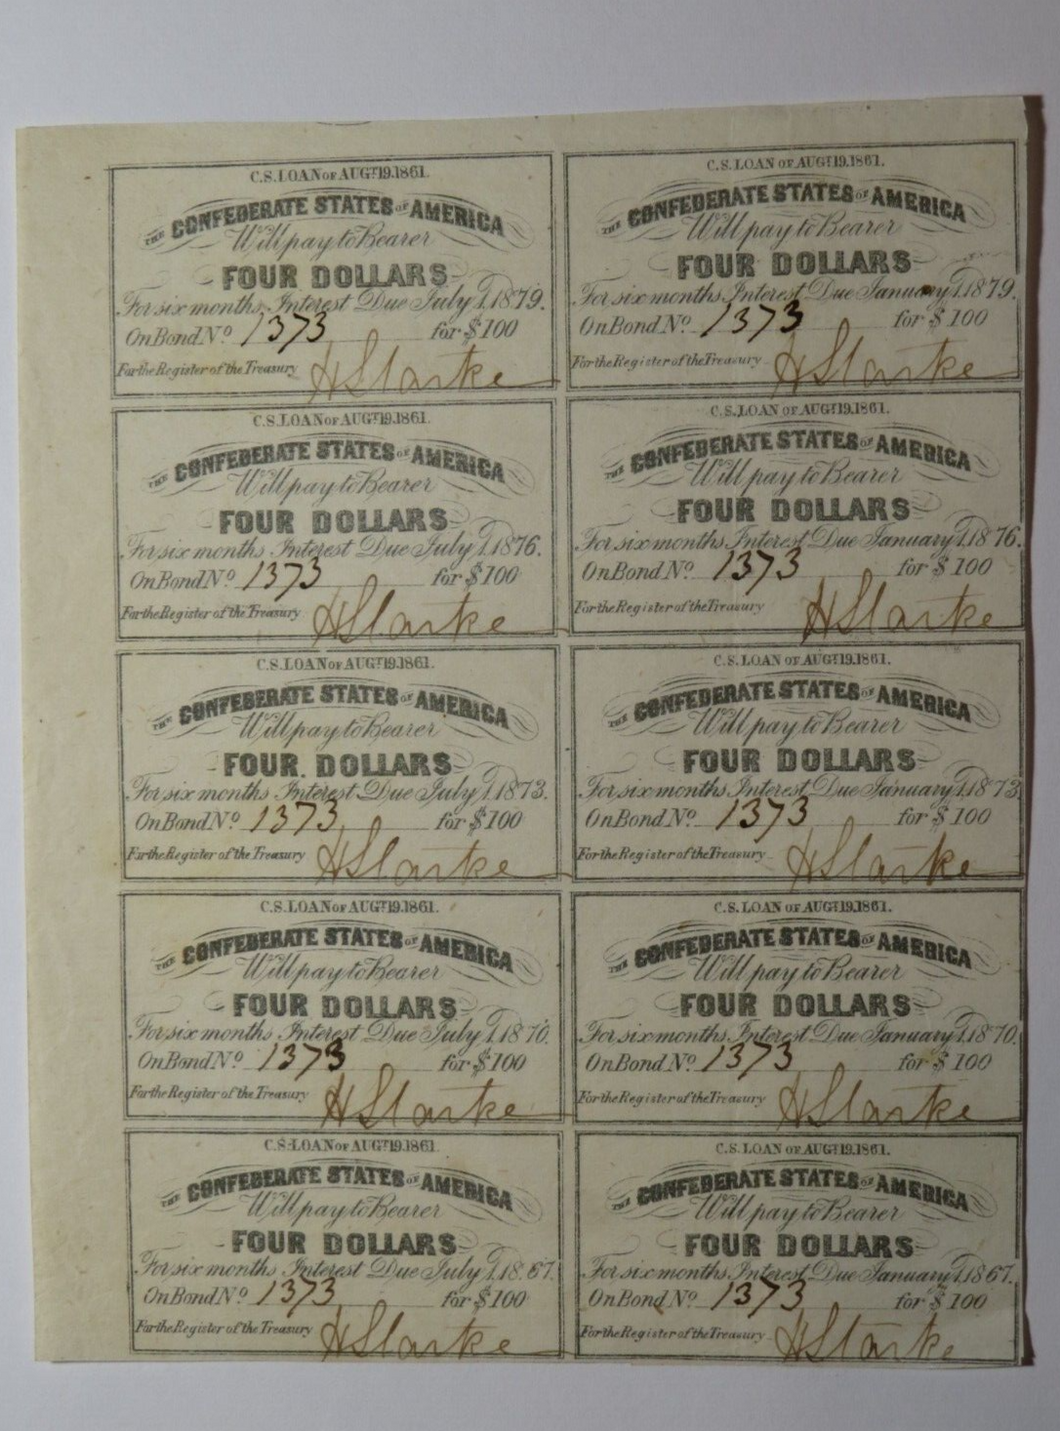 C.S. LOAN OF AUGT. 19. 1861.
THE CONFEDERATE STATES OF AMERICA
Will pay to Bearer
FOUR DOLLARS
For six months Interest Due July 1. 1879.
On Bond No. 1373 for $100
For the Register of the Treasury HStarke
C.S. LOAN OF AUGT. 19. 1861.
THE CONFEDERATE STATES OF AMERICA
Will pay to Bearer
FOUR DOLLARS
For six months Interest Due January 1. 1879.
On Bond No. 1373 for $100
For the Register of the Treasury HStarke
C.S. LOAN OF AUGT. 19. 1861.
THE CONFEDERATE STATES OF AMERICA
Will pay to Bearer
FOUR DOLLARS
For six months Interest Due July 1. 1876.
On Bond No. 1373 for $100
For the Register of the Treasury HStarke
C.S. LOAN OF AUGT. 19. 1861.
THE CONFEDERATE STATES OF AMERICA
Will pay to Bearer
FOUR DOLLARS
For six months Interest Due January 1. 1876.
On Bond No. 1373 for $100
For the Register of the Treasury HStarke
C.S. LOAN OF AUGT. 19. 1861.
THE CONFEDERATE STATES OF AMERICA
Will pay to Bearer
FOUR DOLLARS
For six months Interest Due July 1. 1873.
On Bond No. 1373 for $100
For the Register of the Treasury HStarke
C.S. LOAN OF AUGT. 19. 1861.
THE CONFEDERATE STATES OF AMERICA
Will pay to Bearer
FOUR DOLLARS
For six months Interest Due January 1. 1873
On Bond No. 1373 for $100
For the Register of the Treasury HStarke
C.S. LOAN OF AUGT. 19. 1861.
THE CONFEDERATE STATES OF AMERICA
Will pay to Bearer
FOUR DOLLARS
For six months Interest Due July 1. 1870.
On Bond No. 1373 for $100
For the Register of the Treasury HStarke
C.S. LOAN OF AUGT. 19. 1861.
THE CONFEDERATE STATES OF AMERICA
Will pay to Bearer
FOUR DOLLARS
For six months Interest Due January 1. 1870.
On Bond No. 1373 for $100
For the Register of the Treasury HStarke
C.S. LOAN OF AUGT. 19. 1861.
THE CONFEDERATE STATES OF AMERICA
Will pay to Bearer
FOUR DOLLARS
For six months Interest Due July 1. 1867.
On Bond No. 1373 for $100
For the Register of the Treasury HStarke
C.S. LOAN OF AUGT. 19. 1861.
THE CONFEDERATE STATES OF AMERICA
Will pay to Bearer
FOUR DOLLARS
For six months Interest Due January 1. 1867.
On Bond No. 1373 for $100
For the Register of the Treasury HStarke